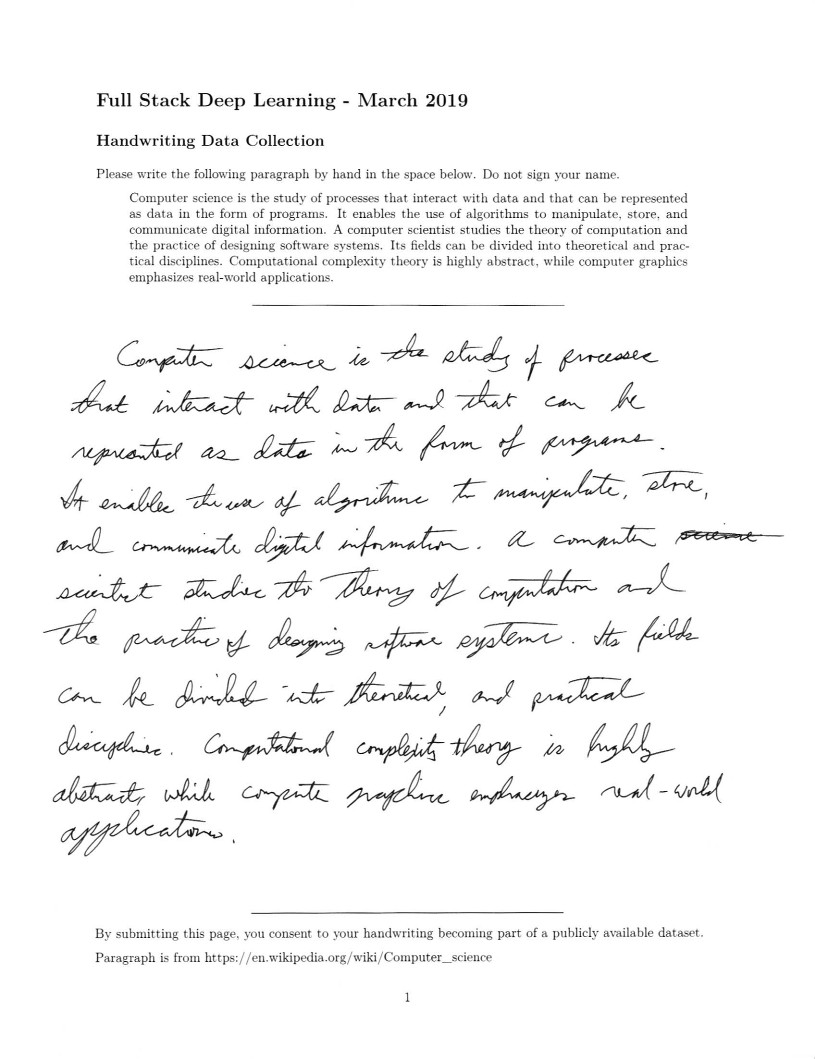 Full Stack Deep Learning - March 2019
Handwriting Data Collection
Please write the following paragraph by hand in the space below. Do not sign your name.
Computer science is the study of processes that interact with data and that can be represented
as data in the form of programs. It enables the use of algorithms to manipulate, store, and
communicate digital information. A computer scientist studies the theory of computation and
the practice of designing software systems. Its fields can be divided into theoretical and prac-
tical disciplines. Computational complexity theory is highly abstract, while computer graphics
emphasizes real-world applications.
Computer science is the study of processes
that interact with data and that can be
represented as data in the form of programs.
It enables the use of algorithms to manipulate, store,
and communicate digital information. A computer science
scientist studies the theory of computation and
the practice of designing software systems. Its fields
can be divided into theoretical, and practical
disciplines. Computational complexity theory is highly
abstract, while computer graphics emphasizes real-world
applications.
By submitting this page, you consent to your handwriting becoming part of a publicly available dataset.
Paragraph is from https://en.wikipedia.org/wiki/Computer_science
1